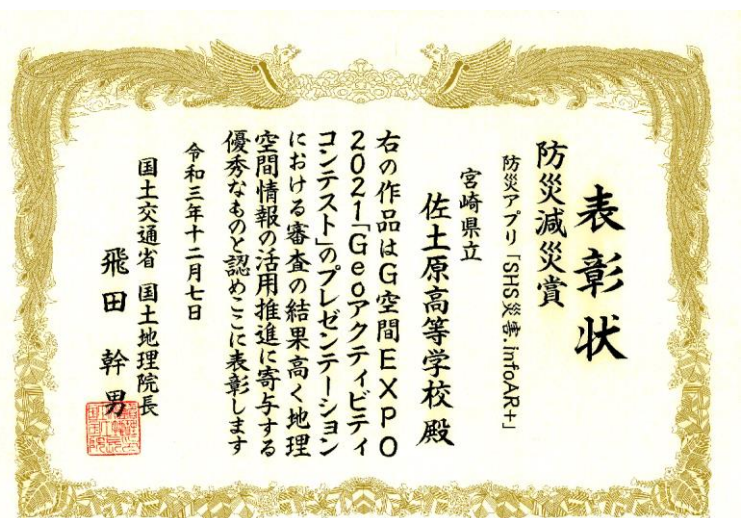 表彰状
防災減災賞
防災アプリ「SHS災害.infoAR+」
宮崎県立
佐土原高等学校殿
右の作品はG空間EXPO
2021「Geoアクティビティ
コンテスト」のプレゼンテーション
における審査の結果高く地理
空間情報の活用推進に寄与する
優秀なものと認めここに表彰します
令和三年十二月七日
国土交通省 国土地理院長
飛田 幹男